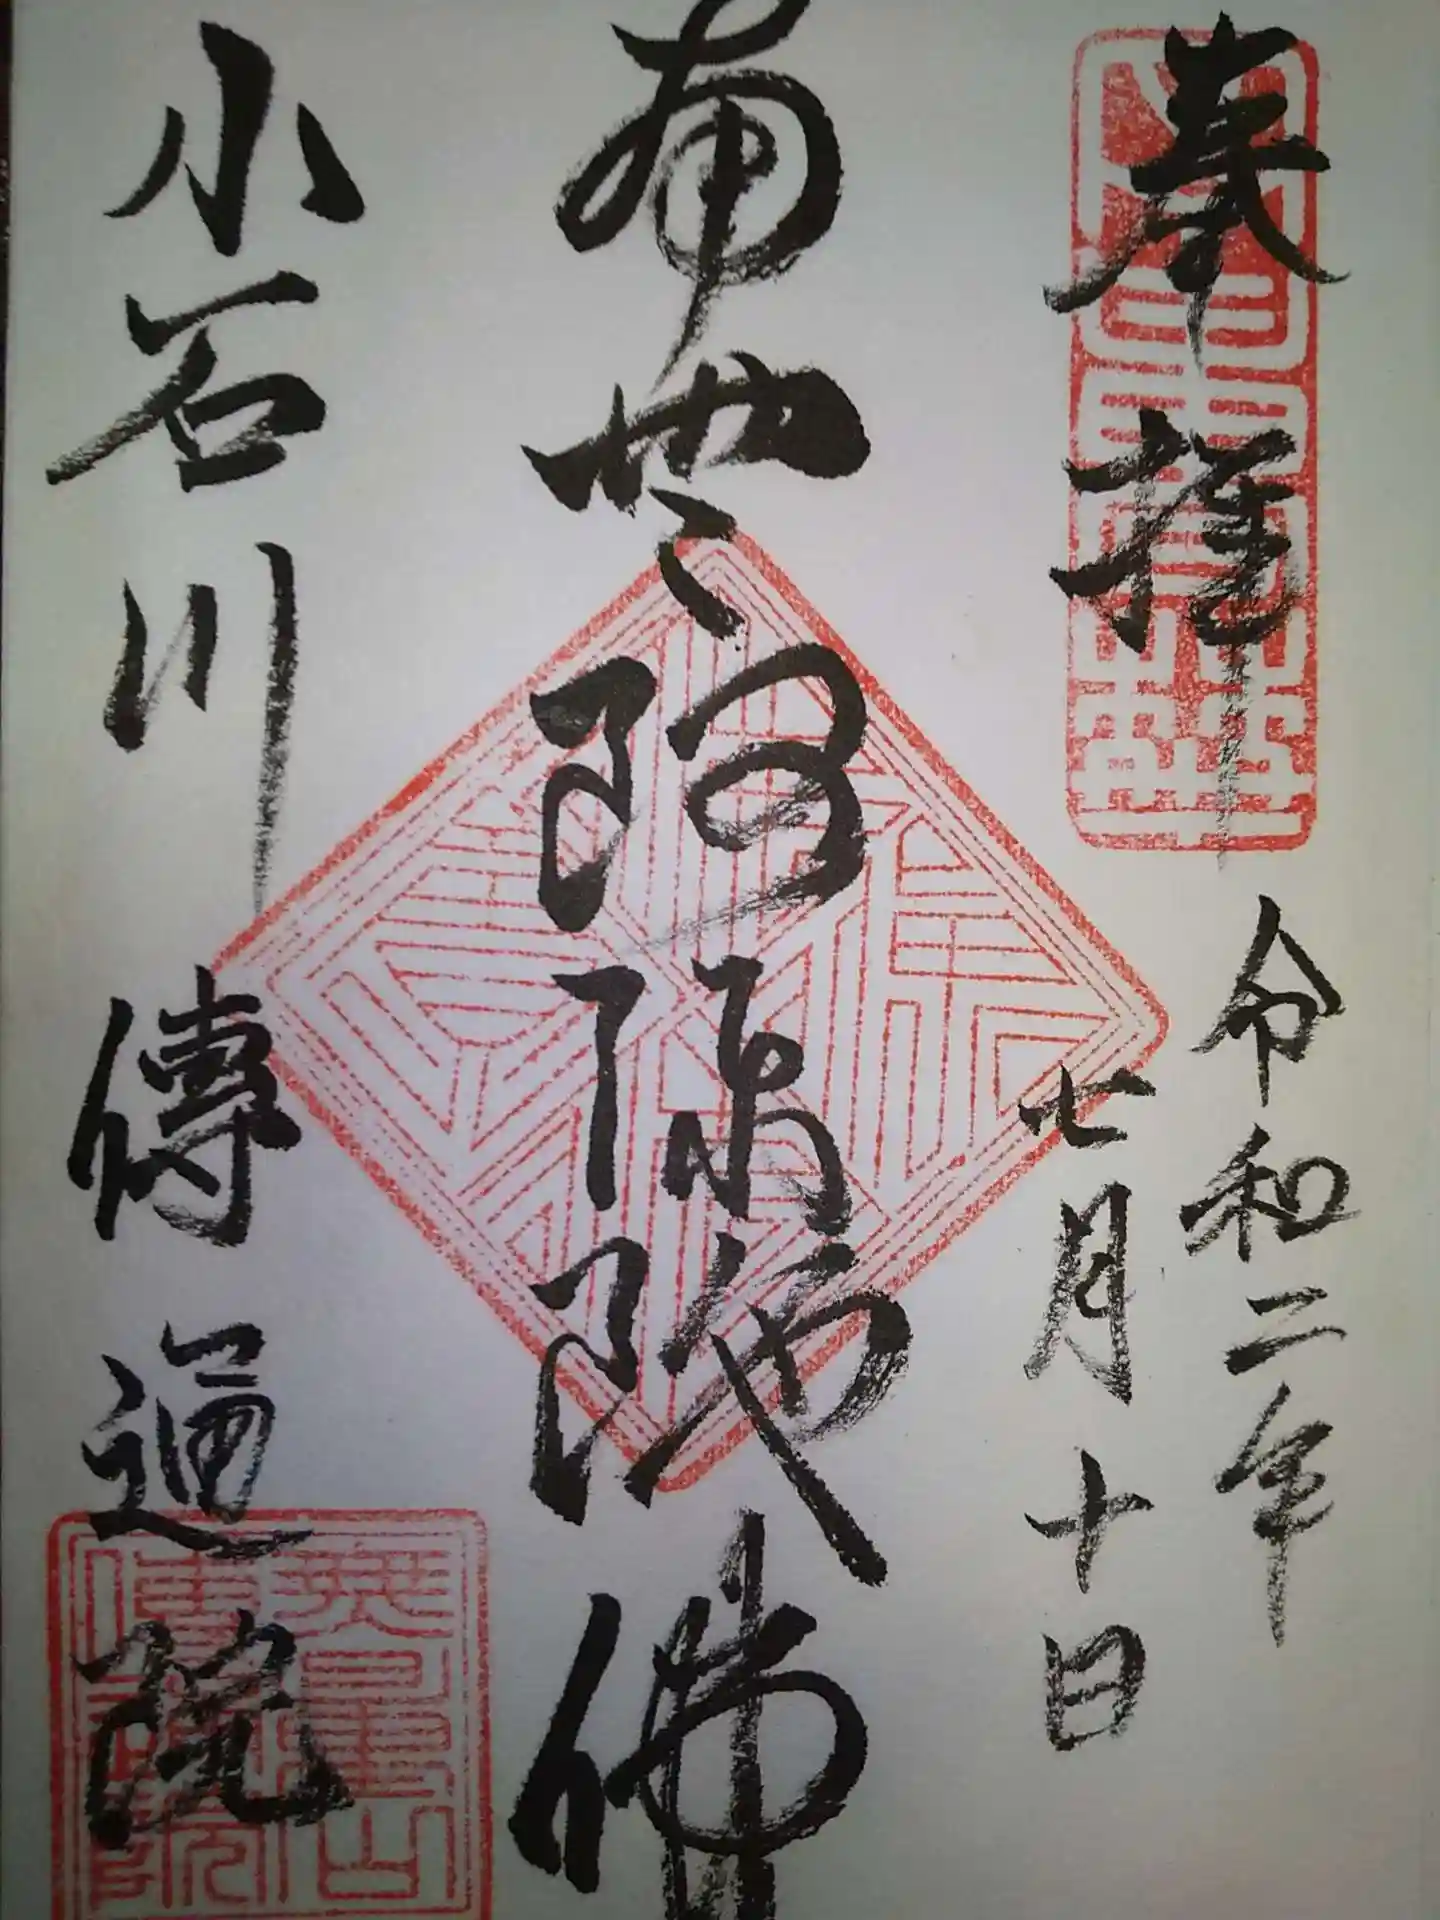 奉拝
令和二年
七月十日
南無阿弥陀佛
小石川 傳通院
無量山
傳通院